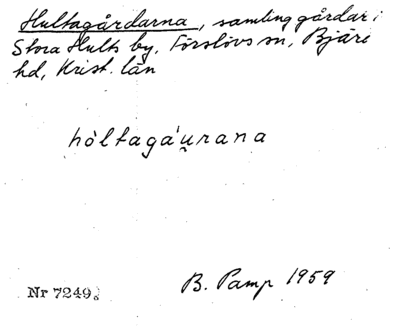 Hultagårdarna, samling gårdar i
Stora Hults by, Förslövs sn, Bjäre
hd, Krist. län
hòltagáu̯rana
Nr 7249.
B. Pamp 1959